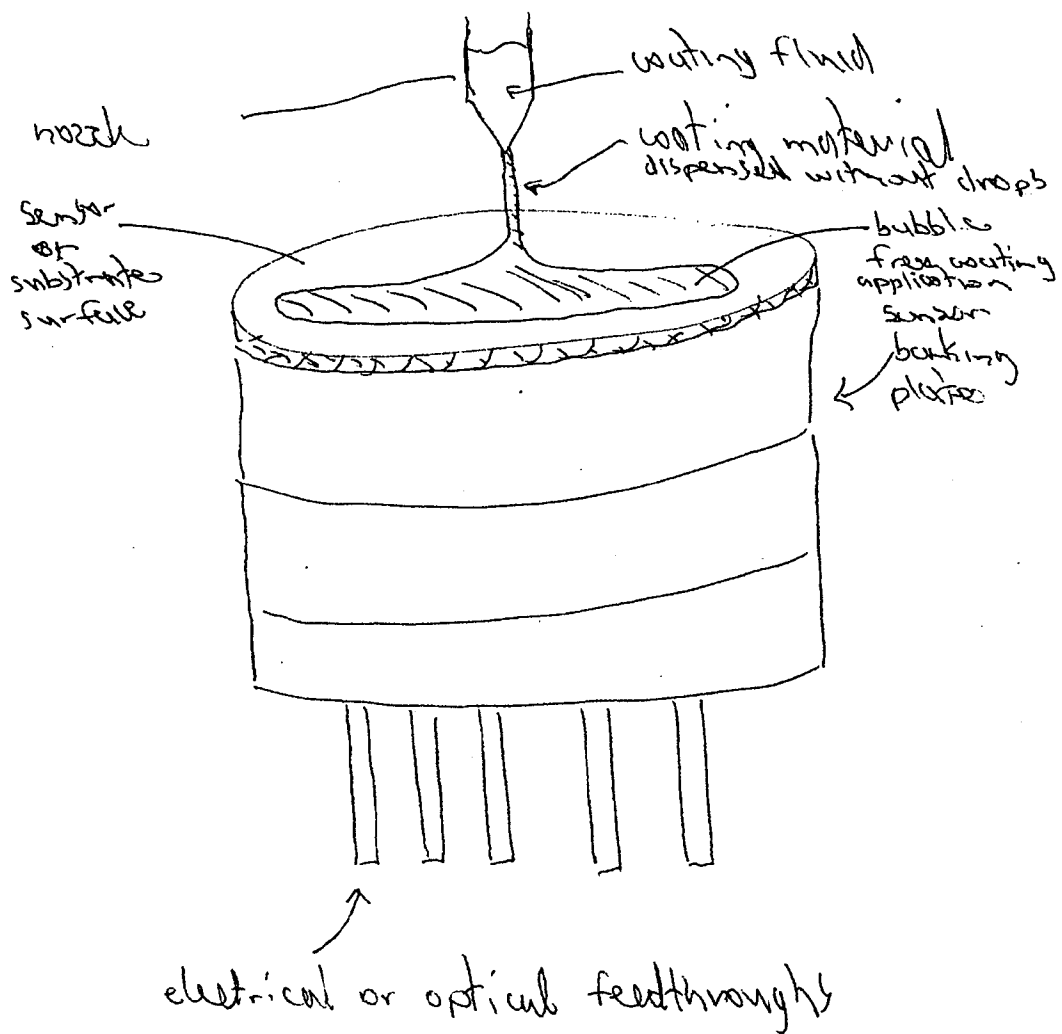 coating fluid
nozzle
coating material
dispensed without drops
sensor
or
substrate
surface
bubble
free coating
application
sensor
backing
plate
electrical or optical feedthroughs